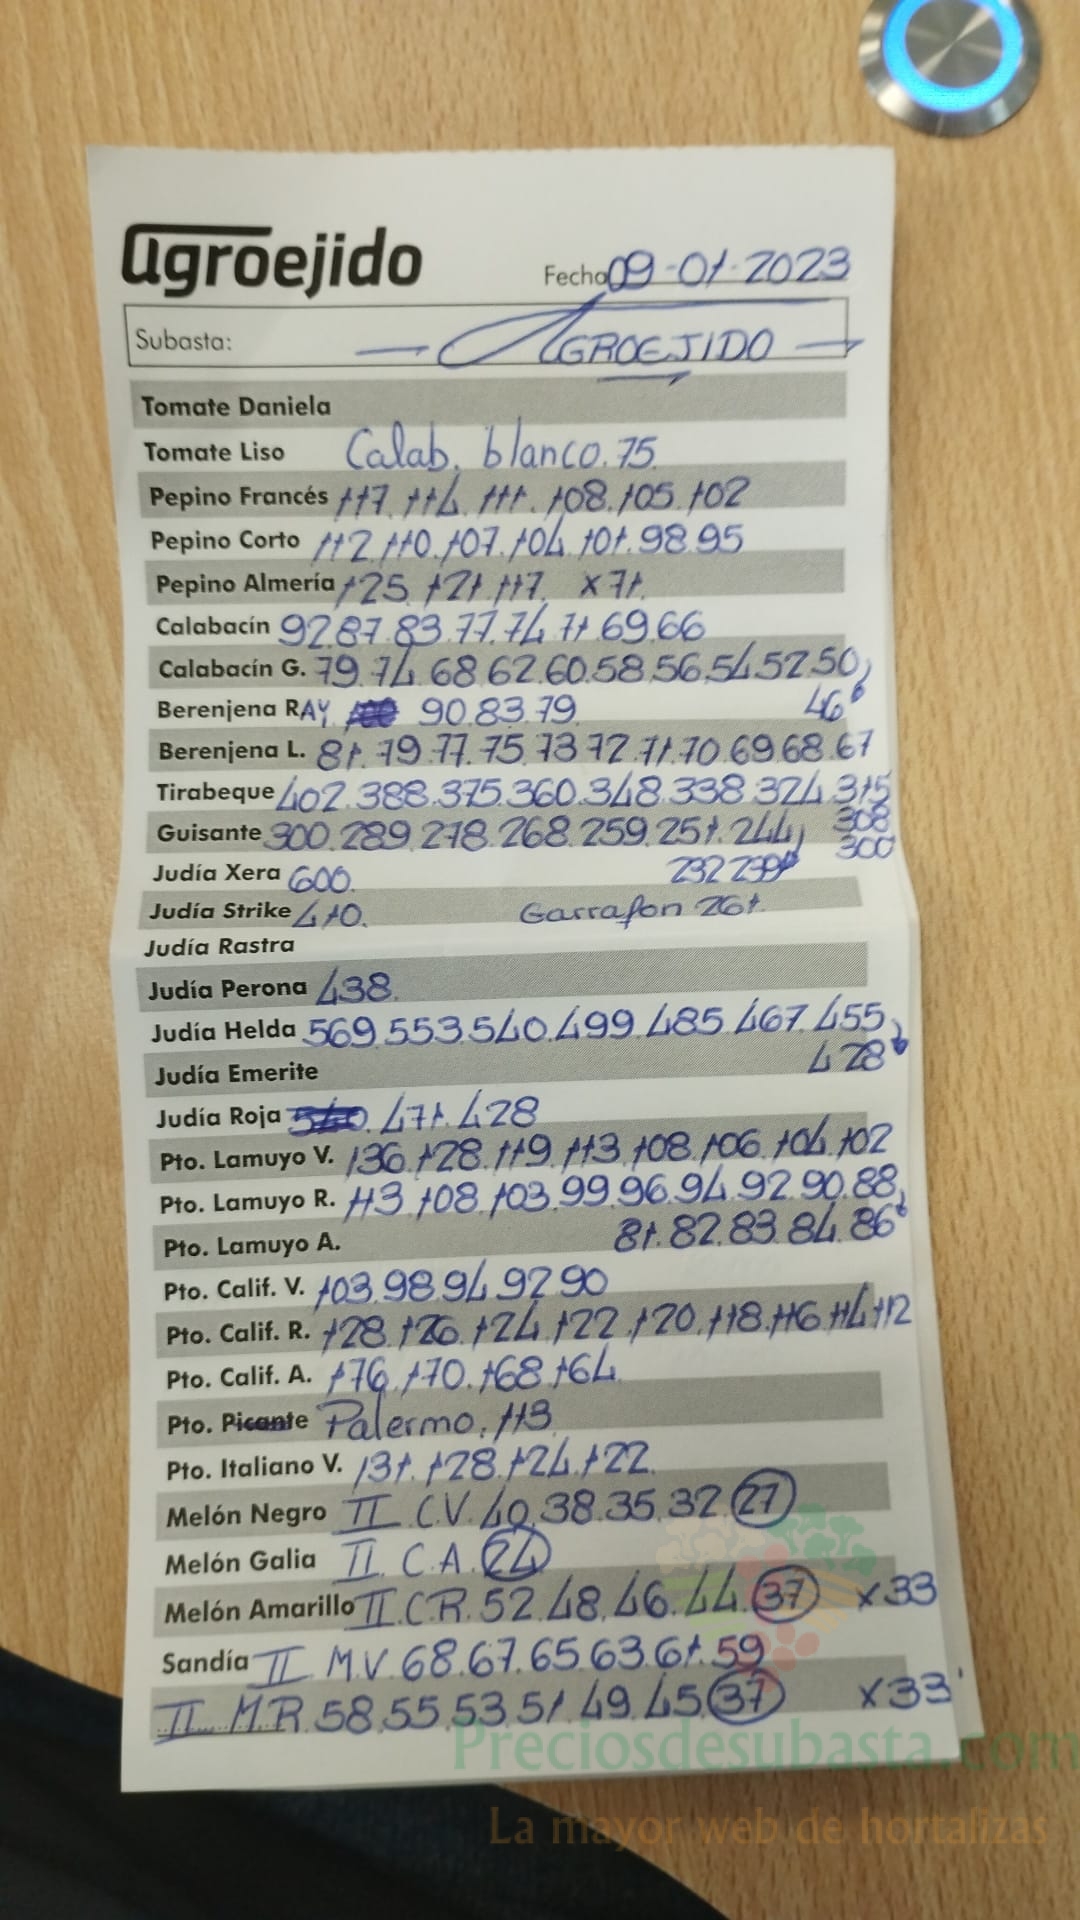 agroejido
Fecha 09-01-2023
Subasta: AGROEJIDO
Tomate Daniela
Tomate Liso Calab. blanco. 75.
Pepino Francés 117. 114. 111. 108. 105. 102
Pepino Corto 112. 110. 107. 104. 101. 98. 95
Pepino Almería 125. 121. 117. x71.
Calabacín 92. 87. 83. 77. 74. 71. 69. 66
Calabacín G. 79. 74. 68. 62. 60. 58. 56. 54. 52. 50
46
Berenjena RAY 90. 83. 79.
Berenjena L. 81. 79. 77. 75. 73. 72. 71. 70. 69. 68. 67
Tirabeque 402. 388. 375. 360. 348. 338. 324. 315
308
300
Guisante 300. 289. 278. 268. 259. 251. 244
232 239
Judía Xera 600.
Judía Strike 410. Garrafon 261.
Judía Rastra
Judía Perona 438.
Judía Helda 569. 553. 540. 499. 485. 467. 455
428
Judía Emerite
Judía Roja 471. 428
Pto. Lamuyo V. 136. 128. 119. 113. 108. 106. 104. 102
Pto. Lamuyo R. 113. 108. 103. 99. 96. 94. 92. 90. 88
81. 82. 83. 84. 86
Pto. Lamuyo A.
Pto. Calif. V. 103. 98. 94. 92. 90
Pto. Calif. R. 128. 126. 124. 122. 120. 118. 116. 114. 112
Pto. Calif. A. 176. 170. 168. 164.
Pto. Picante Palermo. 113
Pto. Italiano V. 131. 128. 124. 122.
Melón Negro II C.V. 40. 38. 35. 32. 27
Melón Galia II. C.A. 24
Melón Amarillo II. C.R. 52. 48. 46. 44. 37 x33
Sandía II M.V. 68. 67. 65. 63. 61. 59
II M.R. 58. 55. 53. 51. 49. 45. 37 x33
Preciosdesubasta.com
La mayor web de hortalizas